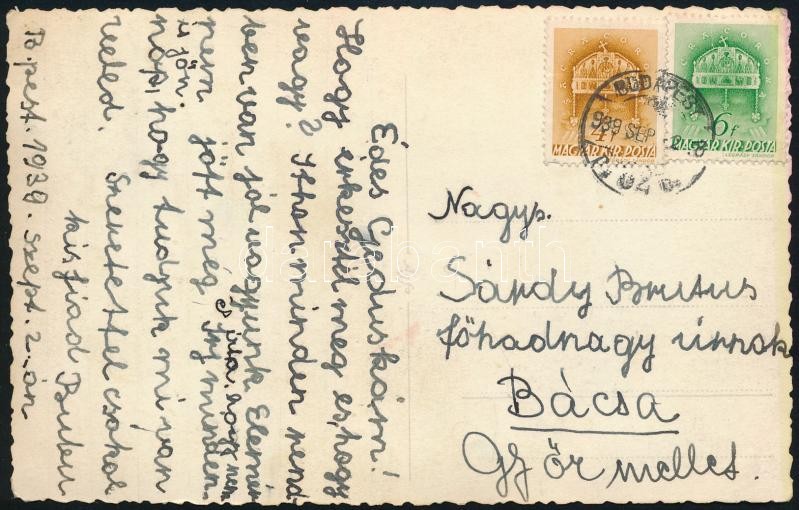 Édes Apuskám!
Hogy érkeztél meg és hogy
vagy? Itthon minden rend-
ben van jól vagyunk Elemér
nem jött még, és írja, hogy nem
is jön. így minden-
nap, hogy tudjuk mi van
veled.
Szeretettel csokol
kis fiad Brutu
Bpest. 1939. szept. 2-án
CORONA
4f
MAGYAR KIR POSTA
CORONA
6f
MAGYAR KIR POSTA
BUDAPEST
939 SEP
Nagys.
Sárdy Brutus
főhadnagy úrnak
Bácsa
Győr mellet.
darabanth